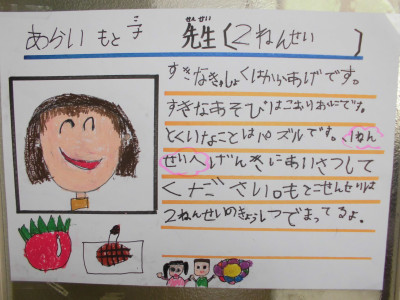 あらい もと子 先生(2ねんせい)
せんせい
すきなきゅうしょくはからあげです。
すきなあそびはこおりおにです。
とくいなことはパズルです。1ねん
せいへ げんきにあいさつして
ください。もとこせんせいは
2ねんせいのきょうしつでまってるよ。